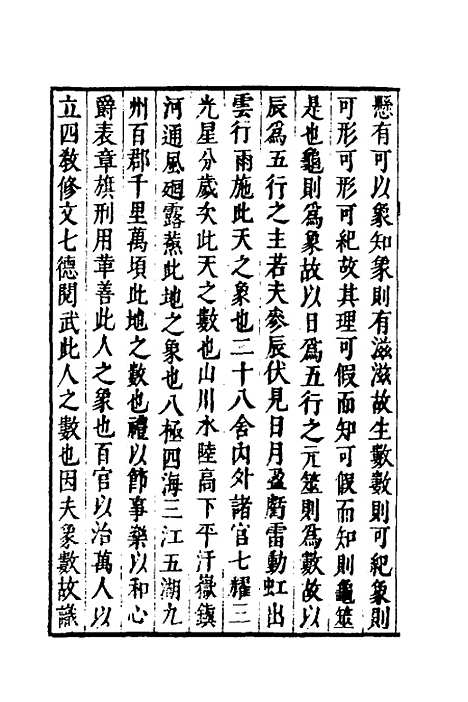 懸有可以象知象則有滋滋故生數數則可紀象則
可形可形可紀故其理可假而知可假而知則龜筮
是也龜則為象故以日為五行之元筮則為數故以
辰為五行之主若夫參辰伏見日月盈虧雷動虹出
雲行雨施此天之象也二十八舍內外諸官七耀三
光星分歲次此天之數也山川水陸高下平汙嶽鎮
河通風廻露蒸此地之象也八極四海三江五湖九
州百郡千里萬頃此地之數也禮以節事樂以和心
爵表章旗刑用革善此人之象也百官以治萬人以
立四教修文七德閱武此人之數也因夫象數故識